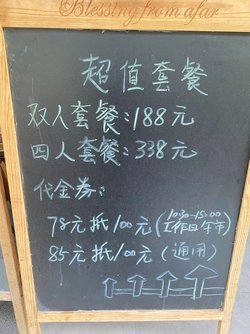 Blessing from afar
超值套餐
双人套餐:188元
四人套餐:338元
代金券:
78元抵100元(10:30-15:00 工作日午市)
85元抵100元(通用)